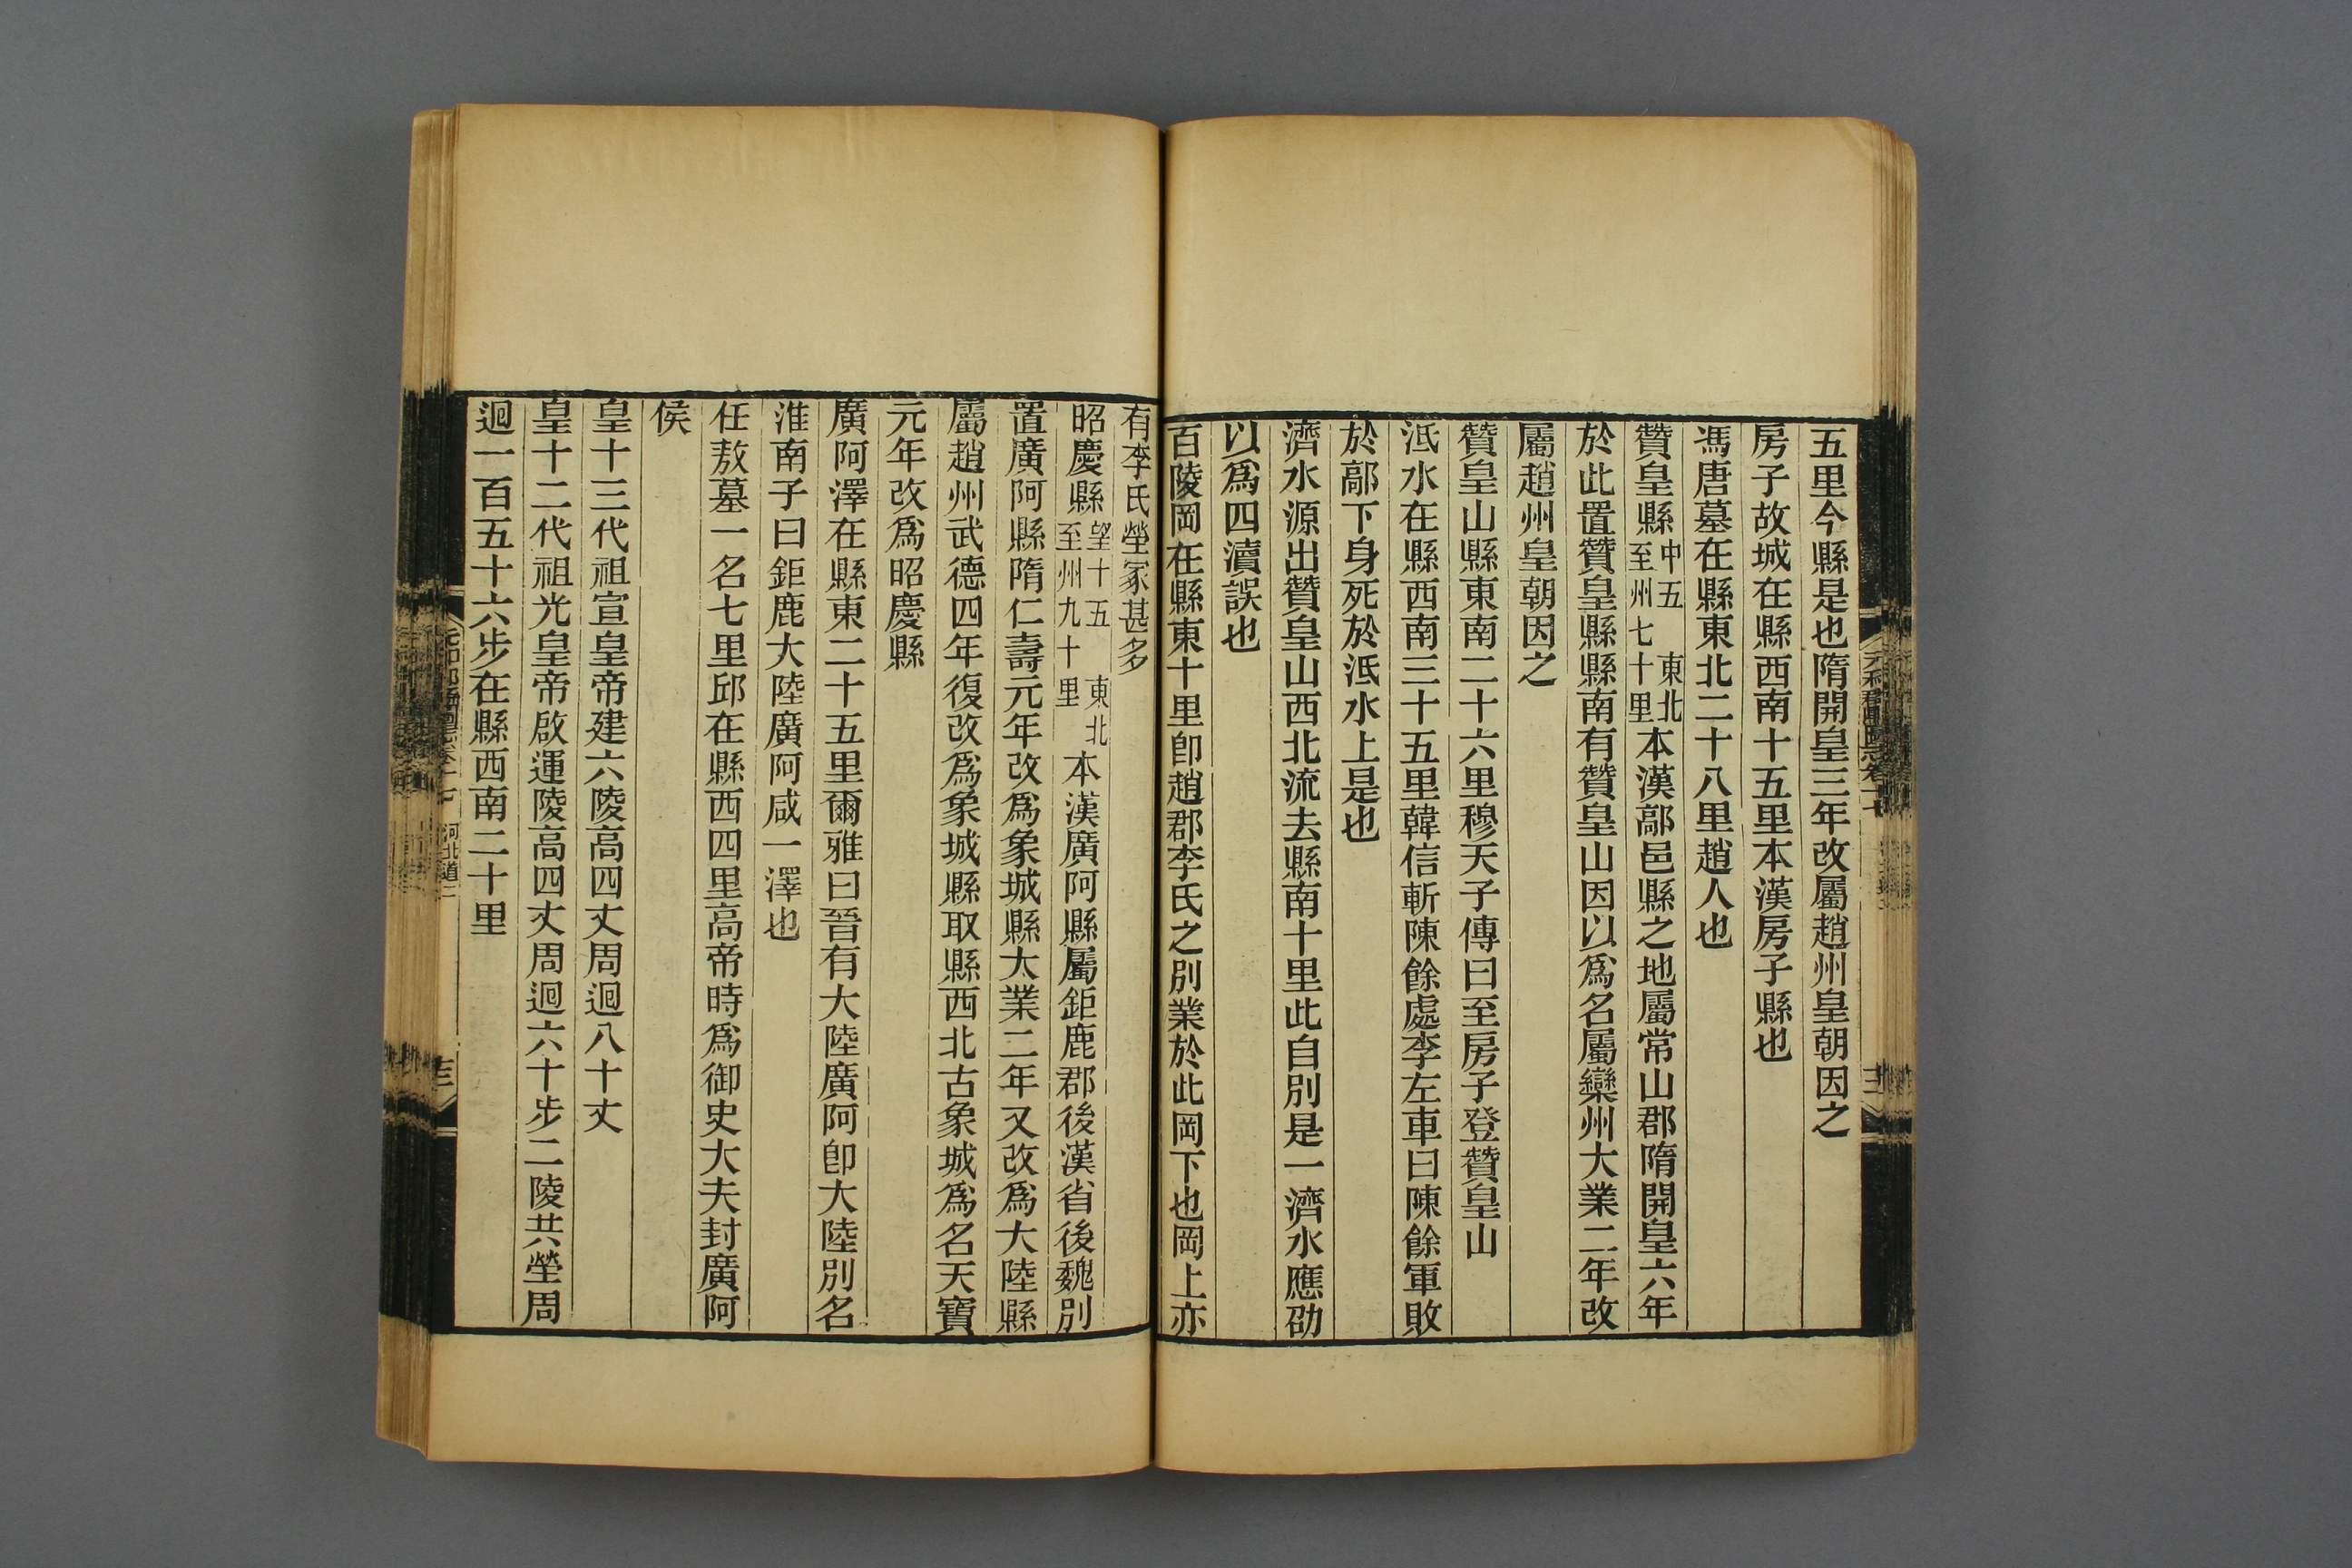 五里今縣是也隋開皇三年改屬趙州皇朝因之
房子故城在縣西南十五里本漢房子縣也
馮唐墓在縣東北二十八里趙人也
贊皇縣中五 東北至州七十里本漢鄗邑縣之地屬常山郡隋開皇六年
於此置贊皇縣縣南有贊皇山因以爲名屬欒州大業二年改
屬趙州皇朝因之
贊皇山縣東南二十六里穆天子傳曰至房子登贊皇山
泜水在縣西南三十五里韓信斬陳餘處李左車曰陳餘軍敗
於鄗下身死於泜水上是也
濟水源出贊皇山西北流去縣南十里此自別是一濟水應劭
以爲四瀆誤也
百陵岡在縣東十里卽趙郡李氏之別業於此岡下也岡上亦
有李氏塋冢甚多
昭慶縣望十五 東北至州九十里本漢廣阿縣屬鉅鹿郡後漢省後魏別
置廣阿縣隋仁壽元年改爲象城縣大業二年又改爲大陸縣
屬趙州武德四年復改爲象城縣取縣西北古象城爲名天寶
元年改爲昭慶縣
廣阿澤在縣東二十五里爾雅曰晉有大陸廣阿卽大陸別名
淮南子曰鉅鹿大陸廣阿咸一澤也
任敖墓一名七里邱在縣西四里高帝時爲御史大夫封廣阿
侯
皇十三代祖宣皇帝建六陵高四丈周迴八十丈
皇十二代祖光皇帝啟運陵高四丈周迴六十步二陵共塋周
迴一百五十六步在縣西南二十里
河北道二